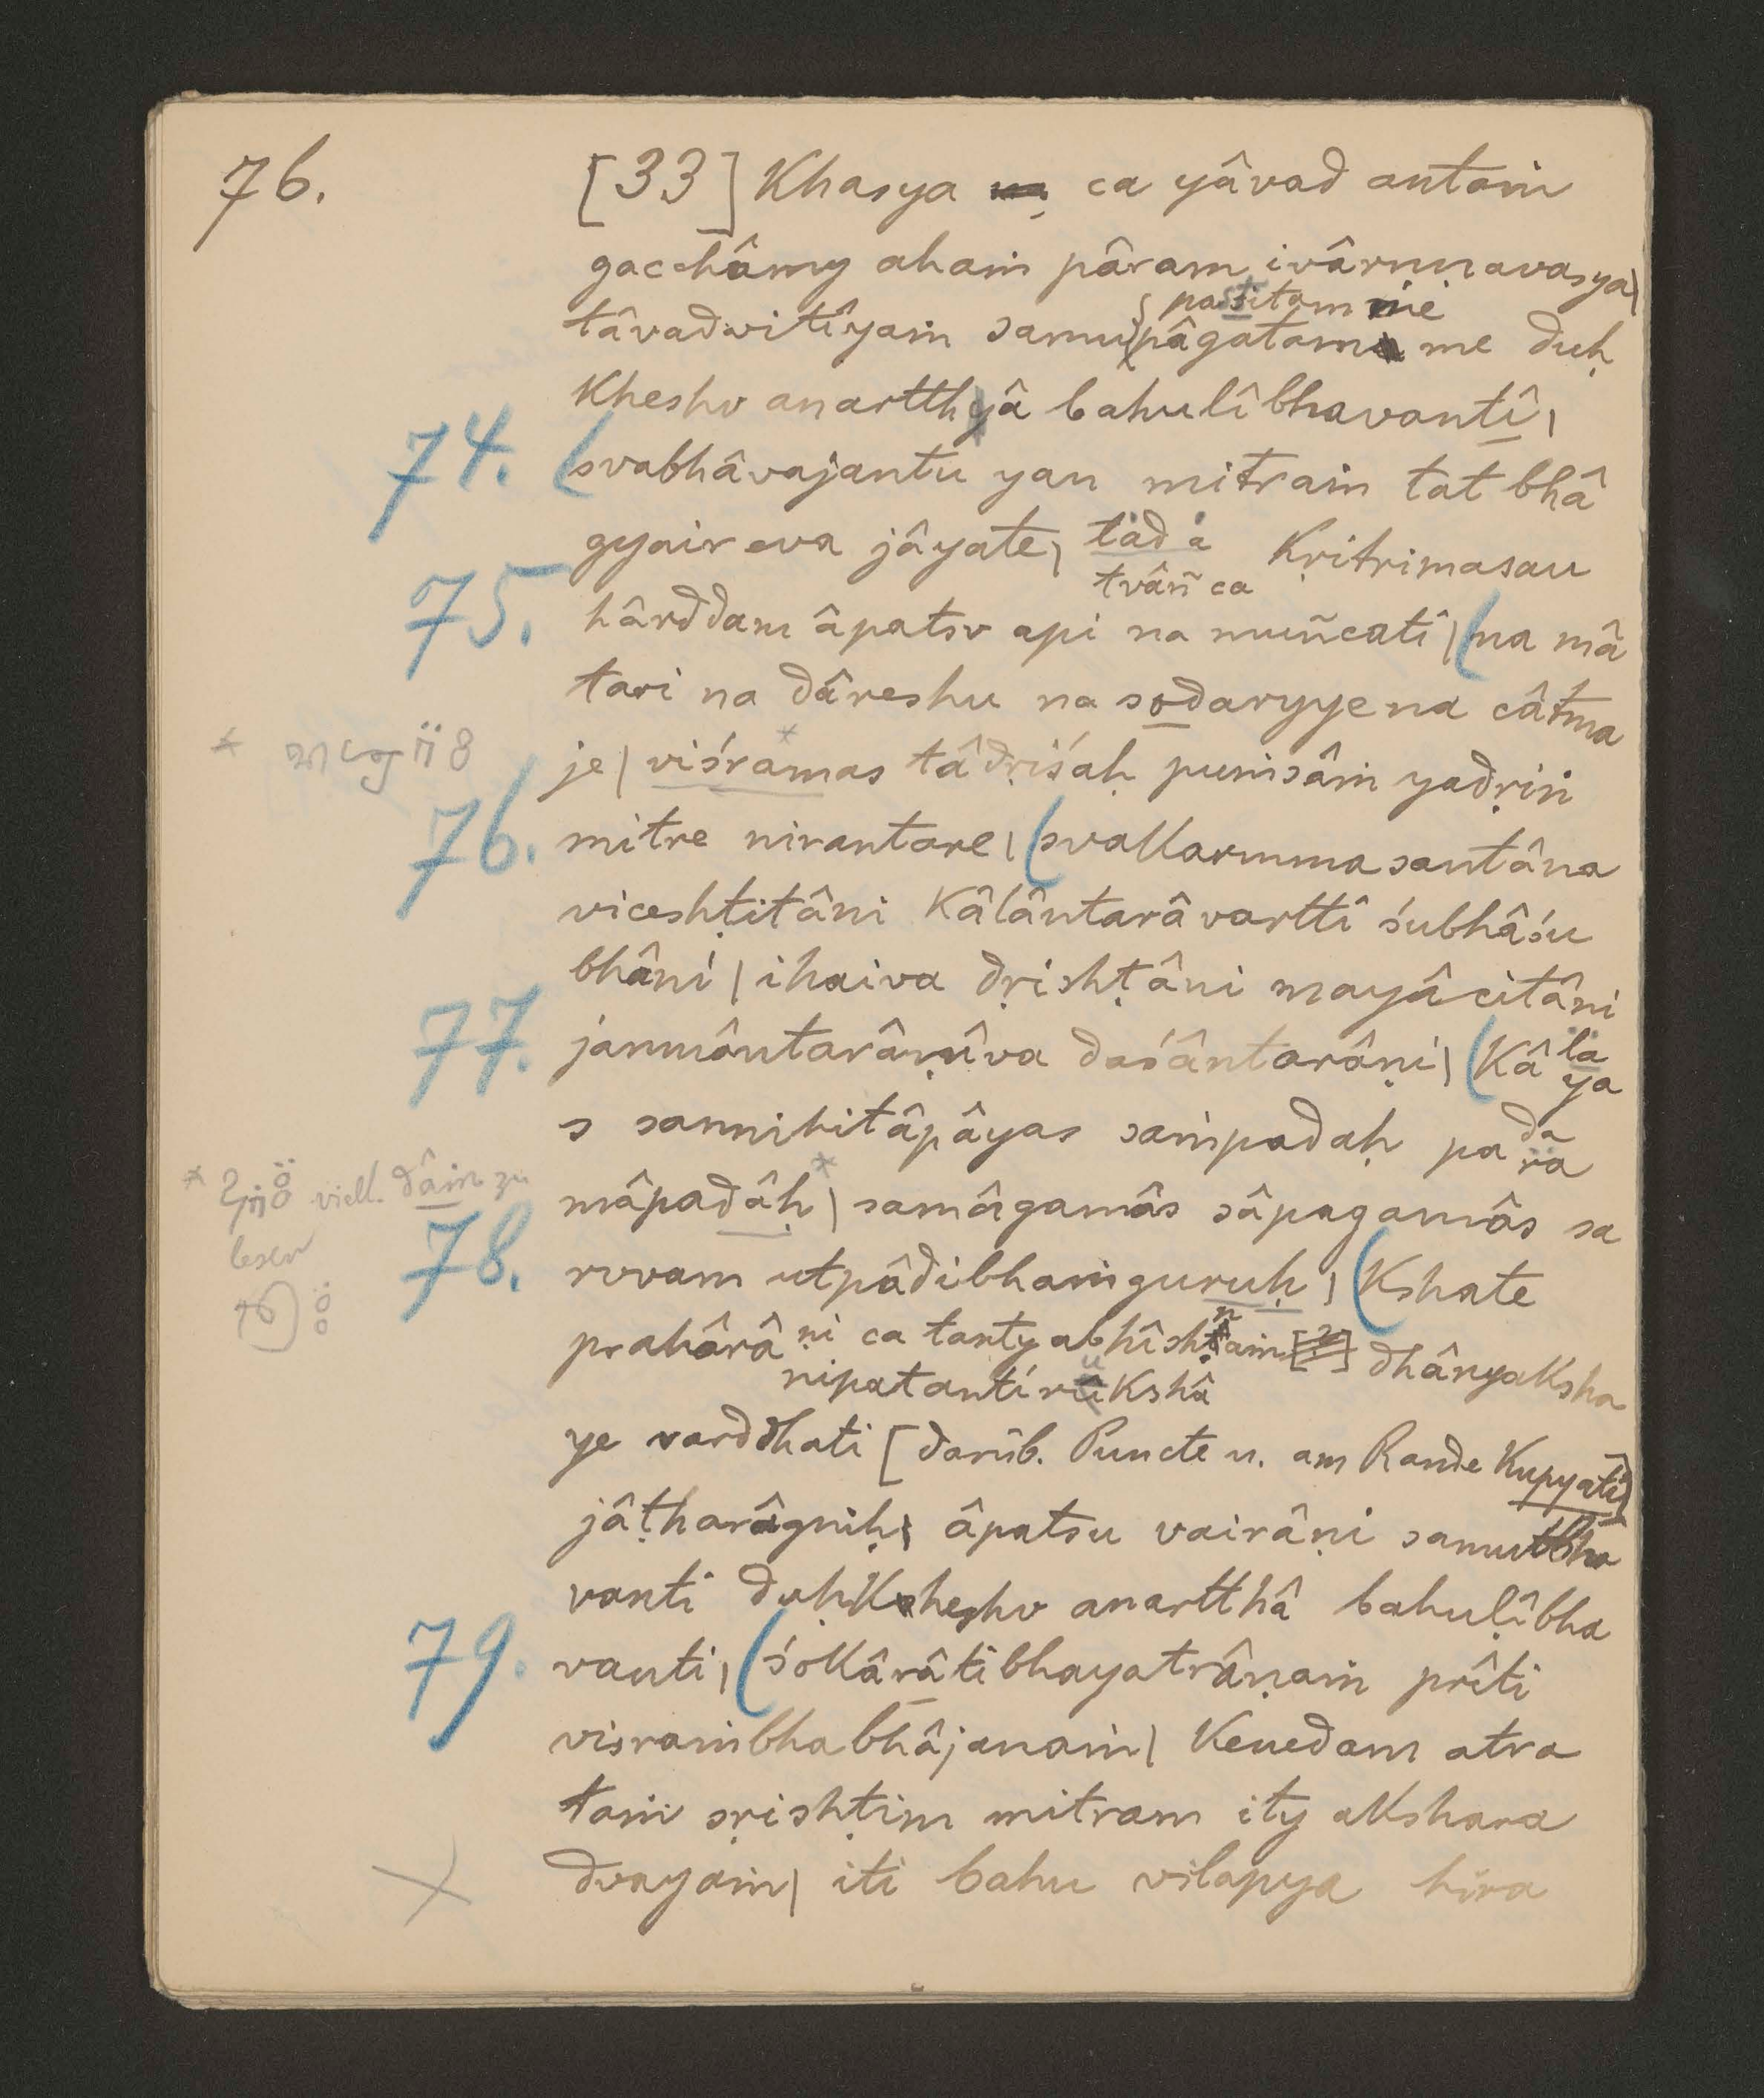 76.
[33] Khasya ca yâvad antaṁ
gacchâmy ahaṁ pâram ivârṇṇavasya|
tâvadvitîyaṁ samupâgatam me duḥ
Kheshv anartthâ bahulîbhavantî|
74. (svabhâvajantu yan mitraṁ tat bhâ
gyair eva jâyate| tad a Kṛitrimasau
tvâñ ca
75. hârddam âpatsv api na muñcatî|(na mâ
tari na dâreshu na sodaryye na câtma
* je| viśramas* tâdṛiśaḥ puṁsâṁ yadṛiṅ
76. mitre nirantare|(svakarmma santâna
viceshṭitâni Kâlântarâvarttî śubhâśu
bhâni| ihaiva dṛishṭâni mayâ citâni
77. janmântarâṇîva daśântarâṇi|(Kâ la
ya
s sannihitâpâyas saṁpadaḥ pa da
ra
* viell. dâṁ zu
lesen
mâpadâḥ*| samâgamâs sâpagamâs sa
78. rvvam utpâdibhaṁguruḥ|(Kshate
prahârâ ṇi ca tanty abhîshṇaṁ [?] dhânyaksha
nipatantirûkshâ
ye varddhati [darüb. Puncte u. am Rande Kupyati]
jâṭharâgniḥ| âpatsu vairâṇi samutbha
vanti duḥkheshv anartthâ bahuḷîbha
79. vanti|(śokârâtibhayatrâṇaṁ prîti
visraṁbhabhâjanaṁ| Kenedam atra
taṁ sṛishṭim mitram ity akshara
dvayaṁ| iti bahu vilapya hira